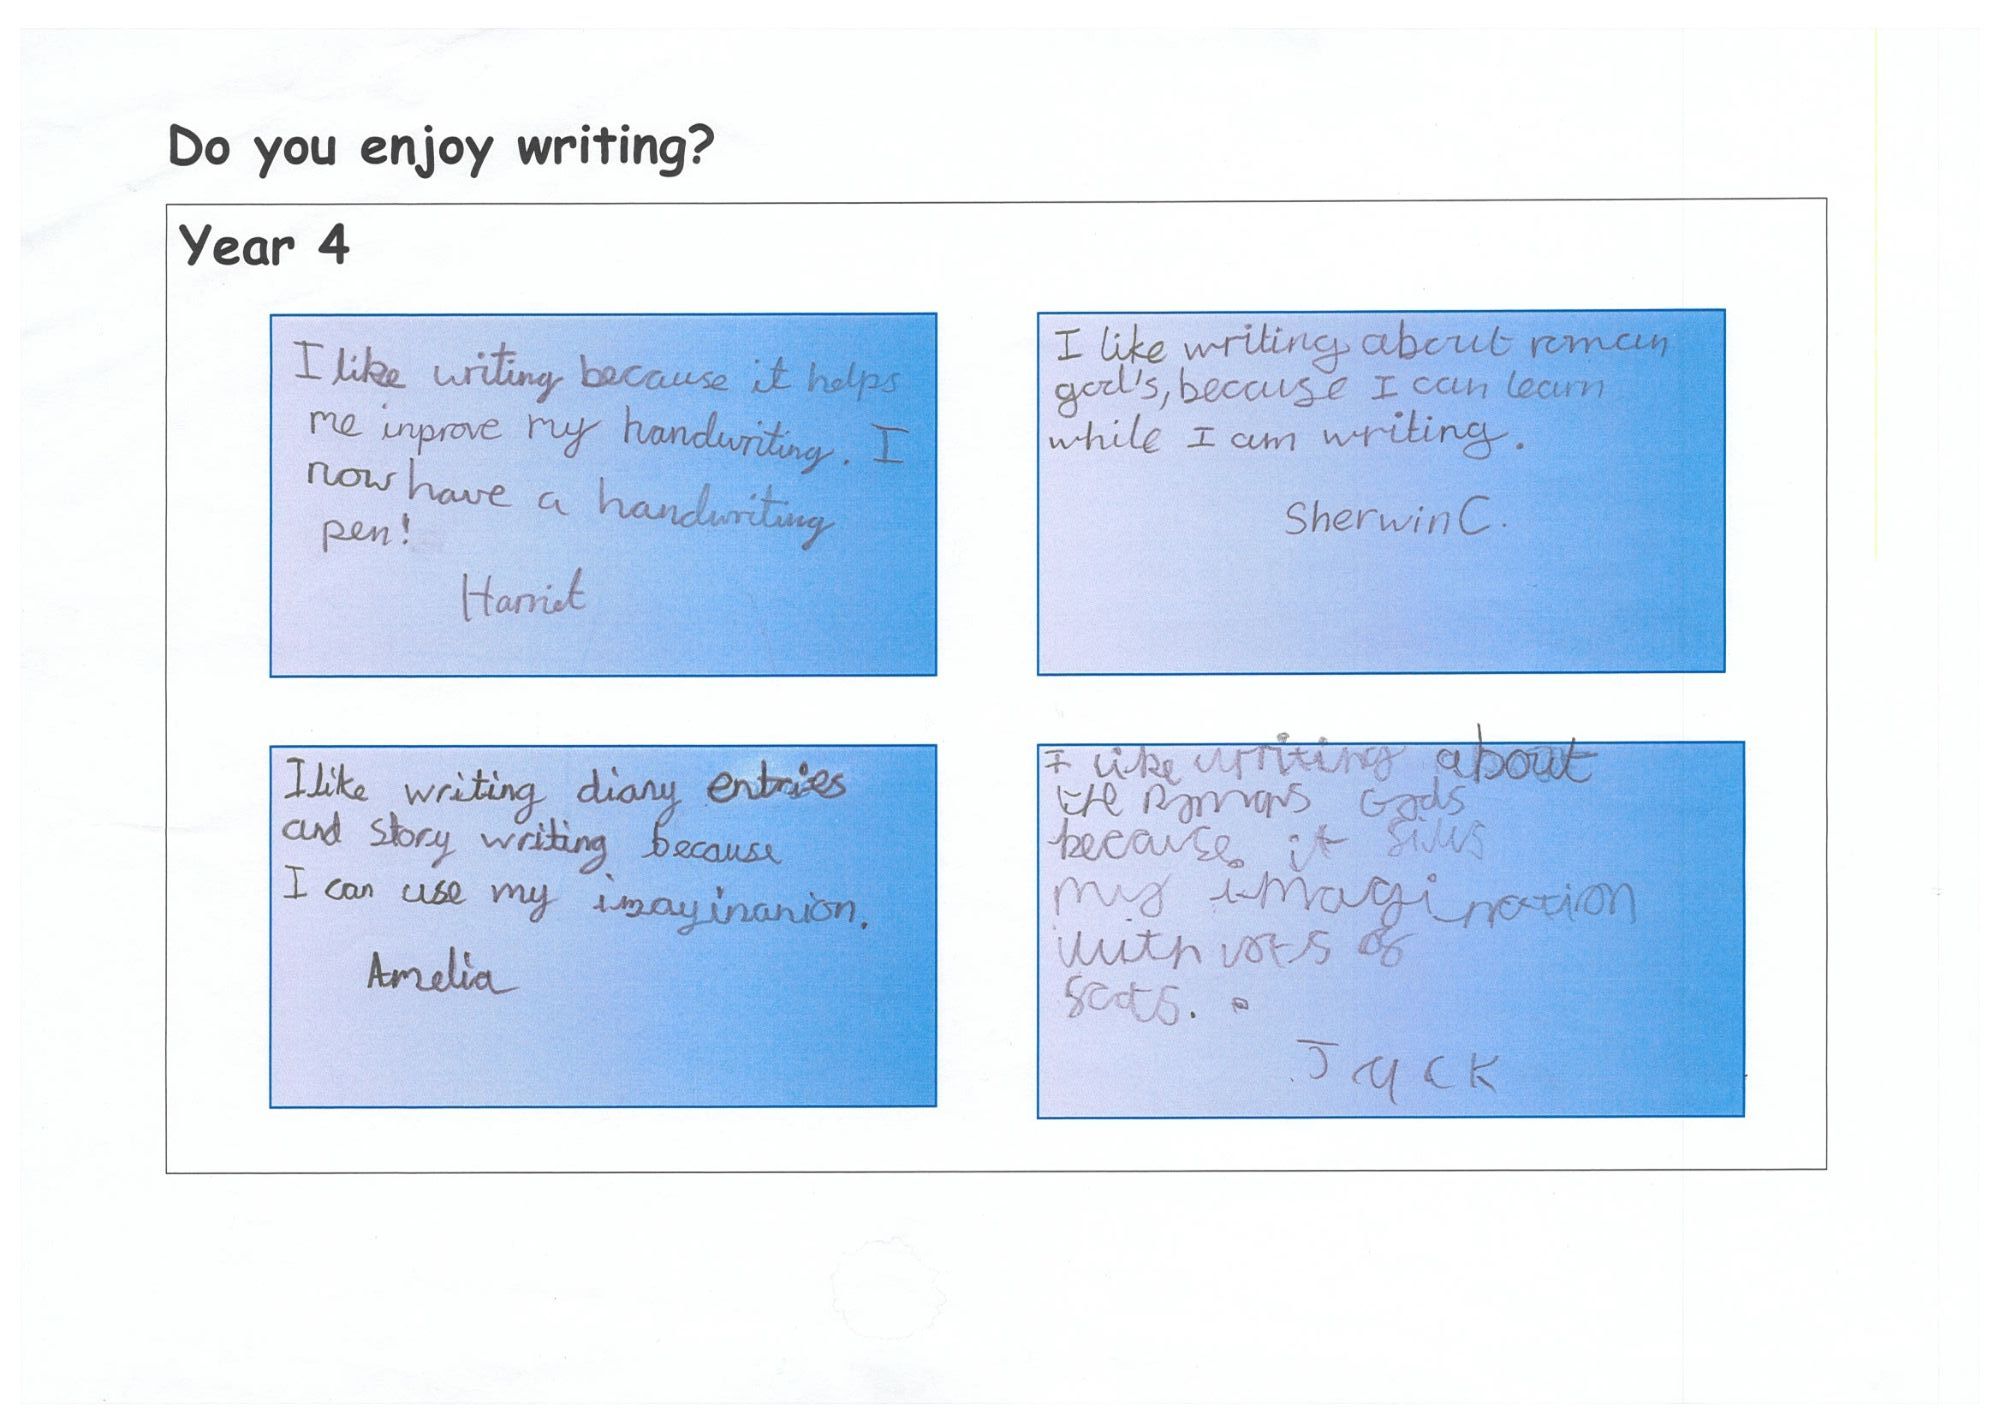 Do you enjoy writing?
Year 4
I like writing because it helps
me inprove my handwriting. I
now have a handwriting
pen!
Harriet
I like writing about roman
god's, because I can learn
while I am writing.
Sherwin C.
I like writing diary entries
and story writing because
I can use my imayinanion.
Amelia
I like writing about
the Romans Gods
because it fills
my imagination
with lots of
facts.
Jack